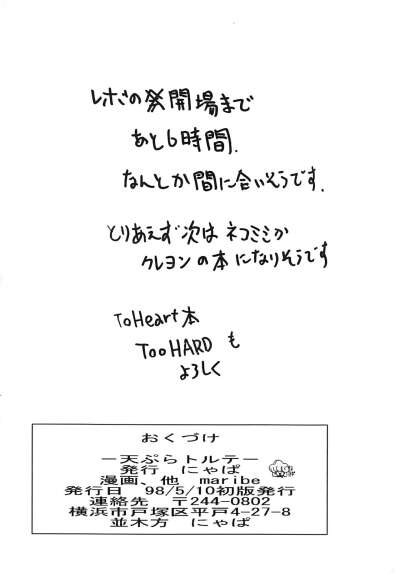 レボの祭開場まで
あと6時間.
なんとか間に合いそうです.
とりあえず次は ネコミミか
クレヨンの本になりそうです
ToHeart本
TooHARDも
よろしく
おくづけ
ー天ぷらトルテー
発行　にゃぱ
漫画、他　maribe
発行日　98/5/10初版発行
連絡先　〒244-0802
横浜市戸塚区平戸4-27-8
並木方　にゃぱ